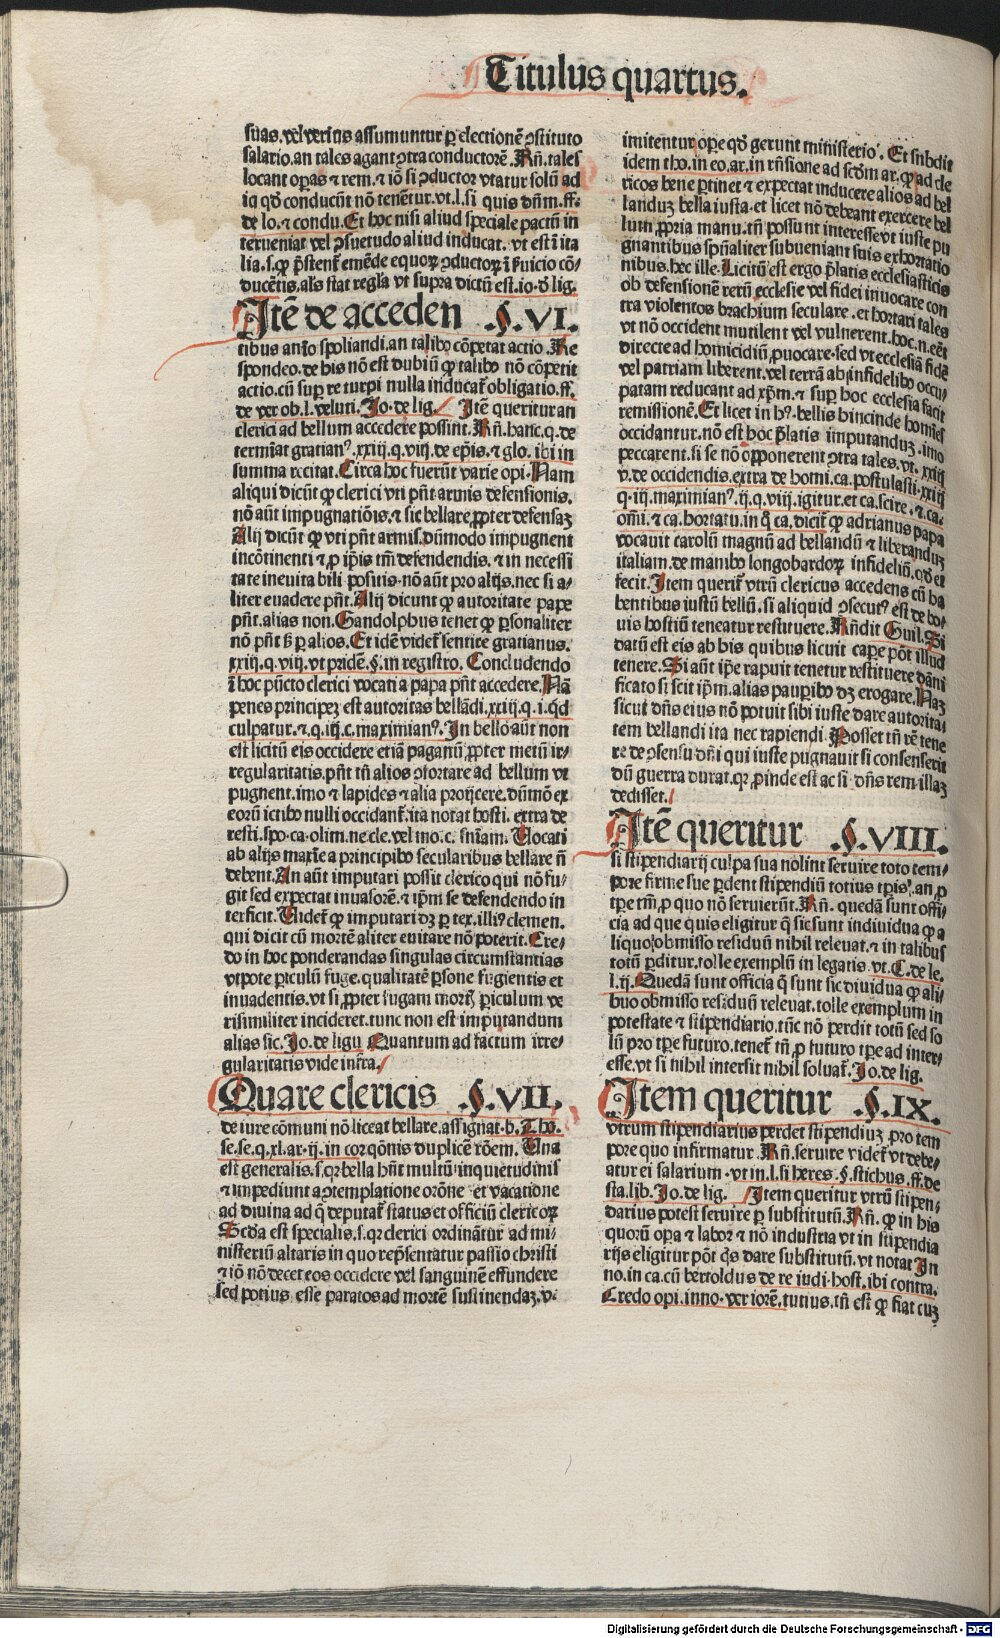 Titulus quartus.
suas. vel verius assumuntur ꝑ electionē ꝯstituto
salario. an tales agant ꝯtra conductorē. Rñ. tales
locant oꝑas ⁊ rem. ⁊ iō si ꝯductor vtatur solū ad
iq̄ qd̄ conducūt nō tenētur. vt. l. si quis dn̄m. ff.
de lo. ⁊ condu. Et hoc nisi aliud speciale pactū in
terueniat vel ꝯsuetudo aliud inducat. vt est ī ita
lia. s. ꝙ p̄stent̄ emēde equoꝝ ꝯductoꝝ ī ẜuicio cō⸗
ducētis. als̄ stat regl̄a vt supra dictū est. io. d̄ lig.
Itē de acceden .§. VI.
tibus aīo spoliandi. an talibꝰ cōpetat actio. Re
spondeo. de his nō est dubiū ꝙ talibꝰ nō cōpetit
actio. cū suꝑ re turpi nulla inducat̄ obligatio. ff.
de ver ob. l. veluti. Jo. de lig. Itē queritur an
clerici ad bellum accedere possint. Rñ. hanc. q. de
termīat gratianꝰ. xxiij. q. viij. de ep̄is. ⁊ glo. ibi in
summa recitat. Circa hoc fuerūt varie opi. Nam
aliqui dicūt ꝙ clerici vti pn̄t armis defensionis.
nō aūt impugnatiōis. ⁊ sic bellare ꝓpter defensaꝫ
Alij dicūt ꝙ vti pn̄t armis. dūmodo impugnent
incōtinenti ⁊ ꝓ ip̄is tm̄ defendendis. ⁊ in necessi
tate ineuitabili positis. nō aūt pro alijs. nec si a⸗
liter euadere pn̄t. Alij dicunt ꝙ autoritate pape
pn̄t. alias non. Gandolphus tenet ꝙ ꝑsonaliter
nō pn̄t ẜꝫ ꝑ alios. Et idē videt̄ sentire gratianus.
xxiij. q. viij. vt pridē. §. in registro. Concludendo
ī hoc pūcto clerici vocati a papa pn̄t accedere. Nā
penes principeꝫ est autoritas bellādi. xxiij. q. i. qd̄
culpatur. ⁊. q. iij. c. maximianꝰ. In bello aūt non
est licitū eis occidere etiā paganū. ꝓpter metū ir⸗
regularitatis. pn̄t tn̄ alios ꝯfortare ad bellum vt
pugnent. imo ⁊ lapides ⁊ alia proijcere. dūmō ex
eorū ictibꝰ nulli occidant̄. ita notat hosti. extra de
resti. spo. ca. olim. ne cle. vel mo. c. sn̄iam. Vocati
ab alijs maxīe a principibꝰ secularibus bellare n̄
debent. An aūt imputari possit clerico qui nō fu⸗
git sed expectat inuasorē. ⁊ ip̄m se defendendo in
terficit. Videt̄ ꝙ imputari dꝫ ꝑ tex. illiꝰ clemen.
qui dicit cū mortē aliter euitare nō poterit. Cre⸗
do in hoc ponderandas singulas circumstantias
vtpote ꝑiculū fuge. qualitatē ꝑsone fugientis et
inuadentis. vt si ꝓpter fugam mortꝭ ꝑiculum ve
risimiliter incideret. tunc non est imputandum
alias sic. Jo. de ligu Quantum ad factum irre⸗
gularitatis vide infra.
Quare clericis .§. VII.
de iure cōmuni nō liceat bellare. assignat. b. Tho.
se. se. q. xl. ar. ij. in corꝑ q̄onis duplicē rōem. Vna
est generalis. s. qꝛ bella hn̄t multū inquietudinis
⁊ impediunt a ꝯtemplatione orōne et vacatione
ad diuina ad q̄ deputat̄ status et officiū clericoꝝ
Scd̄a est specialis. s. qꝛ clerici ordināntur ad mi⸗
nisteriū altaris in quo rep̄sentatur passio christi
⁊ iō nō decet eos occidere vel sanguinē effundere
sed potius esse paratos ad mortē sustinendaꝫ. v.
imitentur oꝑe qd̄ gerunt ministerio. Et subdit
idem tho. in eo. ar. in rn̄sione ad scd̄m ar. ꝙ ad cle
ricos bene ꝑtinet ⁊ expectat inducere alios ad bel
landuꝫ bella iusta. et licet nō debeant exercere bel
lum ꝓpria manu. tn̄ possunt interesse vt iuste pu
gnantibus spn̄aliter subueniant suis exhortatio
nibus. hec ille. Licitū est ergo p̄latis ecclesiasticis
ob defensionē rerū ecclesie vel fidei inuocare con
tra violentos brachium seculare. et hortari tales
vt nō occident mutilent vel vulnerent. hoc. n. eēt
directe ad homicidiū ꝓuocare. sed vt ecclesiā fidē
vel patriam liberent. vel terrā ab infidelibꝰ occu
patam reducant ad xp̄m. ⁊ suꝑ hoc ecclesia facit
remissionē. Et licet in hꝰ. bellis hincinde homīes
occidantur. nō est hoc p̄latis imputanduꝫ. imo
peccarent. si se nō opponerent ꝯtra tales. vt. xxiij
v. de occidendis. extra de homi. ca. postulasti. xxiij
q. iij. maximianꝰ. ij. q. viij. igitur. et ca. scire. ⁊. ca.
om̄i. ⁊ ca. hortatu. in q̄ ca. dicit̄ ꝙ adrianus papa
vocauit carolū magnū ad bellandū ⁊ liberanduꝫ
italiam. de manibꝰ longobardoꝝ infideliū. qd̄ et
fecit. Item querit̄ vtrū clericus accedens cū ha
bentibus iustū bellū. si aliquid ꝯsecutꝰ est de bo⸗
nis hostiū teneatur restituere. Rn̄dit Guil. Si
datū est eis ab his quibus licuit caꝑe pōt illud
tenere. Si aūt ip̄e rapuit tenetur restituere dāni
ficato si scit ip̄m. alias pauꝑibꝰ dꝫ erogare. Naꝫ
sicut dn̄s eius nō potuit sibi iuste dare autorita⸗
tem bellandi ita nec rapiendi. Posset tn̄ rē tene
re de ꝯsensu dn̄i qui iuste pugnauit si consenserit
dū guerra durat. qꝛ ꝓinde est ac si dn̄s rem illaꝫ
dedisset.
Itē queritur .§. VIII.
si stipendiarij culpa sua nolint seruire toto tem⸗
pore firme sue ꝑdent stipendiū totius tꝑis. an ꝓ
tꝑe tm̄. ꝓ quo nō seruierūt. Rñ. quedā sunt offi⸗
cia ad que quis eligitur q̄ sic sunt indiuidua ꝙ a
liquo obmisso residuū nihil releuat. ⁊ in talibus
totū ꝑditur. tolle exemplū in legatis. vt. C. de le.
l. ij. Quedā sunt officia q̄ sunt sic diuidua ꝙ ali⸗
quo obmisso residuū releuat. tolle exemplum in
potestate ⁊ stipendiario. tūc nō perdit totū sed so
lū pro tꝑe futuro. tenet̄ tn̄ ꝓ futuro tꝑe ad inter⸗
esse. vt si nihil intersit nihil soluat̄. Jo. de lig.
Item queritur .§. IX.
vtrum stipendiarius perdet stipendiuꝫ pro tem
pore quo infirmatur. Rñ. seruire videt̄ vt debe⸗
atur ei salarium. vt in. l. si heres. §. stichus. ff. de
sta. lib. Jo. de lig. Item queritur vtrū stipen⸗
darius potest seruire ꝑ substitutū. Rñ. ꝙ in his
quorū oꝑa ⁊ labor ⁊ nō industria vt in stipendia
rijs eligitur pōt q̄s dare substitutū. vt notat In
no. in ca. cū bertoldus de re iudi. host. ibi contra.
Credo opi. inno. veriorē. tutius. tn̄ est ꝙ fiat cuꝫ
Digitalisierung gefördert durch die Deutsche Forschungsgemeinschaft - DFG